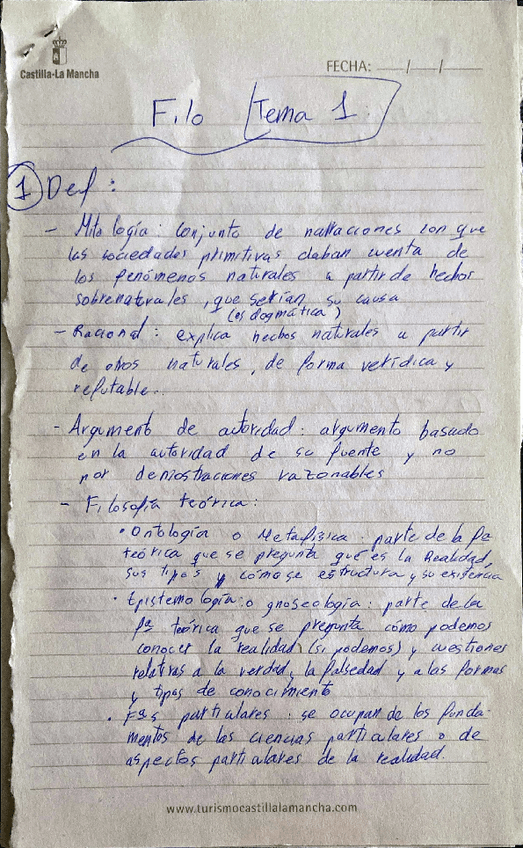 Castilla-La Mancha
FECHA: __/__/__
Filo Tema 1
1 Def:
- Mitología: conjunto de narraciones con que
las sociedades primitivas daban cuenta de
los fenómenos naturales a partir de hechos
sobrenaturales, que serían su causa
(es dogmática)
- Racional: explica hechos naturales a partir
de otros naturales, de forma verídica y
refutable.
- Argumento de autoridad: argumento basado
en la autoridad de su fuente y no
por demostraciones razonables
- Filosofía teórica:
• Ontología o Metafísica: parte de la fª
teórica que se pregunta qué es la Realidad,
sus tipos y cómo se estructura y su existencia
• Epistemología o gnoseología: parte de la
fª teórica que se pregunta cómo podemos
conocer la realidad (si podemos) y cuestiones
relativas a la verdad, la falsedad y a las formas
y tipos de conocimiento
• Fªs particulares: se ocupan de los funda-
mentos de las ciencias particulares o de
aspectos particulares de la realidad.
www.turismocastillalamancha.com